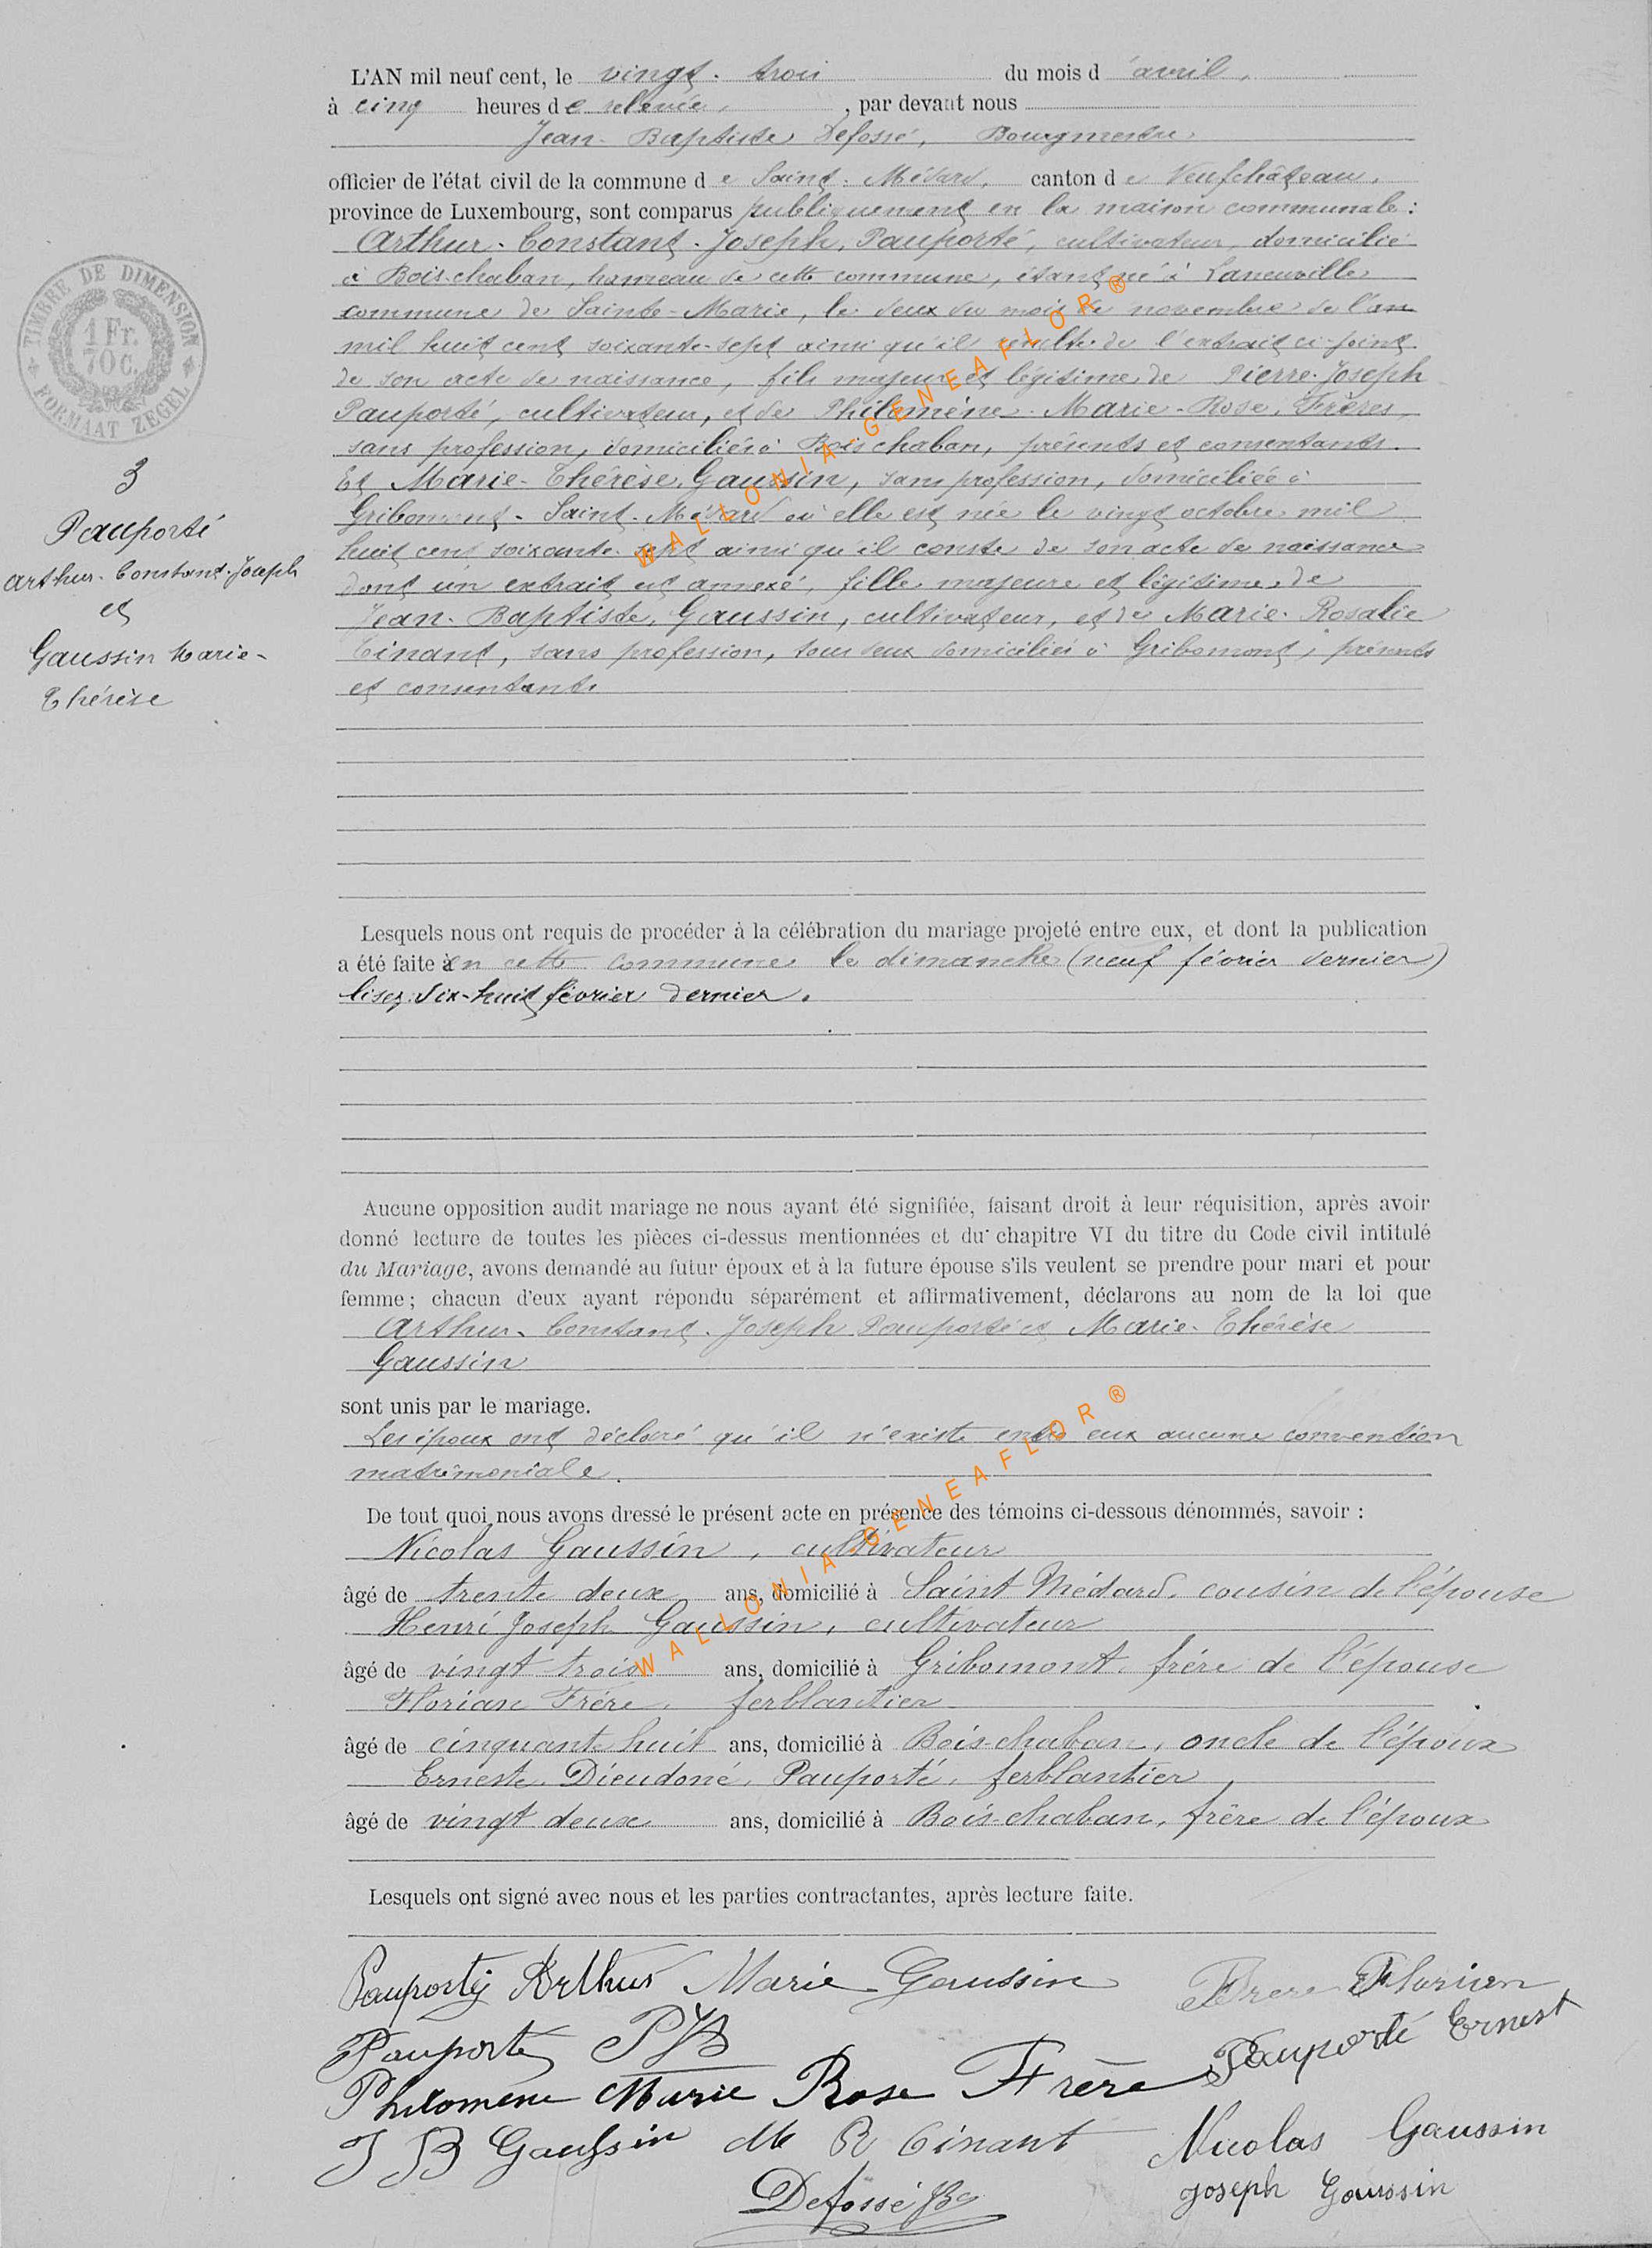 L'AN mil neuf cent, le vingt-trois du mois d'avril,
à cinq heures de relevée, par devant nous
Jean-Baptiste Defossé, Bourgmestre
officier de l'état civil de la commune de Saint-Médard, canton de Neufchâteau,
province de Luxembourg, sont comparus publiquement en la maison communale :
TIMBRE DE DIMENSION
1 Fr.
70 C.
FORMAAT ZEGEL
Arthur-Constant-Joseph, Pauporté, cultivateur, domicilié
à Bois-chaban, hameau de cette commune, étant né à Laneuville
commune de Sainte-Marie, le deux du mois de novembre de l'an
mil huit cent soixante-sept ainsi qu'il résulte de l'extrait ci-joint
de son acte de naissance, fils majeur et légitime de Pierre-Joseph
Pauporté, cultivateur, et de Philomène-Marie-Rose, Frères,
sans profession, domiciliés à Bois chaban, présents et consentants.
3
Pauporté
Arthur-Constant-Joseph
et
Gaussin Marie-
Thérèse
Et Marie-Thérèse, Gaussin, sans profession, domiciliée à
Gribomont-Saint-Médard où elle est née le vingt octobre mil
huit cent soixante-sept ainsi qu'il conste de son acte de naissance
dont un extrait est annexé, fille majeure et légitime de
Jean-Baptiste, Gaussin, cultivateur, et de Marie-Rosalie
Tinant, sans profession, tous deux domiciliés à Gribomont, présents
et consentants
WALLONIA-GENEAFLOR ®
Lesquels nous ont requis de procéder à la célébration du mariage projeté entre eux, et dont la publication
a été faite à en cette commune le dimanche (neuf février dernier)
lisez dix-huit février dernier.
Aucune opposition audit mariage ne nous ayant été signifiée, faisant droit à leur réquisition, après avoir
donné lecture de toutes les pièces ci-dessus mentionnées et du chapitre VI du titre du Code civil intitulé
du Mariage, avons demandé au futur époux et à la future épouse s'ils veulent se prendre pour mari et pour
femme ; chacun d'eux ayant répondu séparément et affirmativement, déclarons au nom de la loi que
Arthur-Constant-Joseph Pauporté et Marie-Thérèse
Gaussin
sont unis par le mariage.
Les époux ont déclaré qu'il n'existe entre eux aucune convention
matrimoniale.
De tout quoi nous avons dressé le présent acte en présence des témoins ci-dessous dénommés, savoir :
Nicolas Gaussin, cultivateur
âgé de trente deux ans, domicilié à Saint Médard, cousin de l'épouse
Henri Joseph Gaussin, cultivateur
âgé de vingt trois ans, domicilié à Gribomont, frère de l'épouse
Florian Frère, ferblantier
âgé de cinquante huit ans, domicilié à Bois-chaban, oncle de l'époux
Erneste, Dieudoné, Pauporté, ferblantier,
âgé de vingt deux ans, domicilié à Bois-chaban, frère de l'époux
WALLONIA-GENEAFLOR ®
Lesquels ont signé avec nous et les parties contractantes, après lecture faite.
Pauporté Arthur Marie Gaussin Frere Florian
Pauporté PJ Pauporté Ernest
Philomène Marie Rose Frère
J B Gaussin M R Tinant Nicolas Gaussin
Defossé Joseph Gaussin